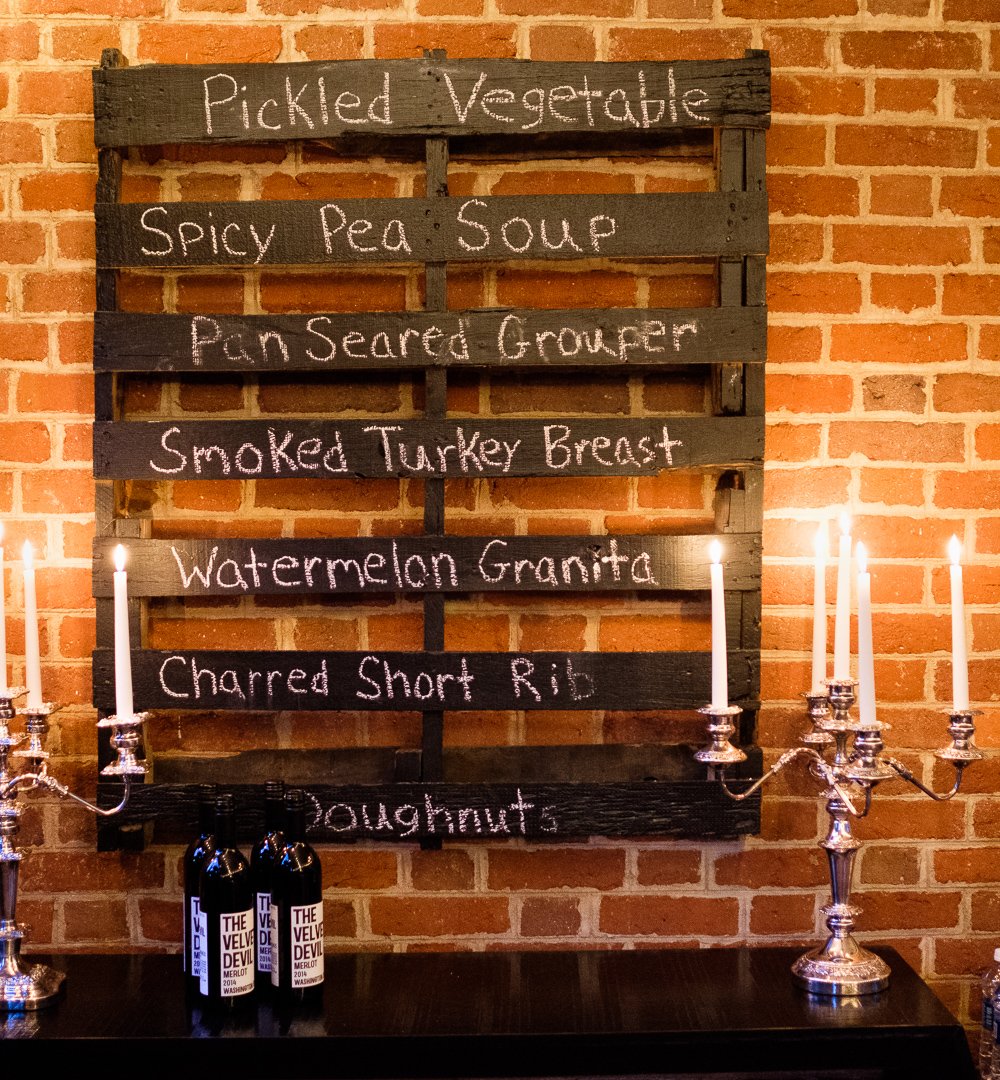 Pickled Vegetable
Spicy Pea Soup
Pan Seared Grouper
Smoked Turkey Breast
Watermelon Granita
Charred Short Rib
Doughnuts
THE
VELVE
DEVIL
MERLOT
2014
WASHINGTON
THE
VELVE
DEVIL
MERLOT
2014
WASHINGTON